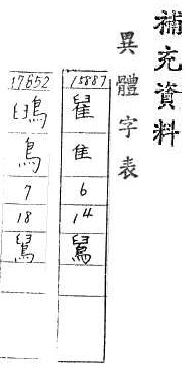 補充資料
異體字表
15887
隹
6
14
17652
鳥
7
18